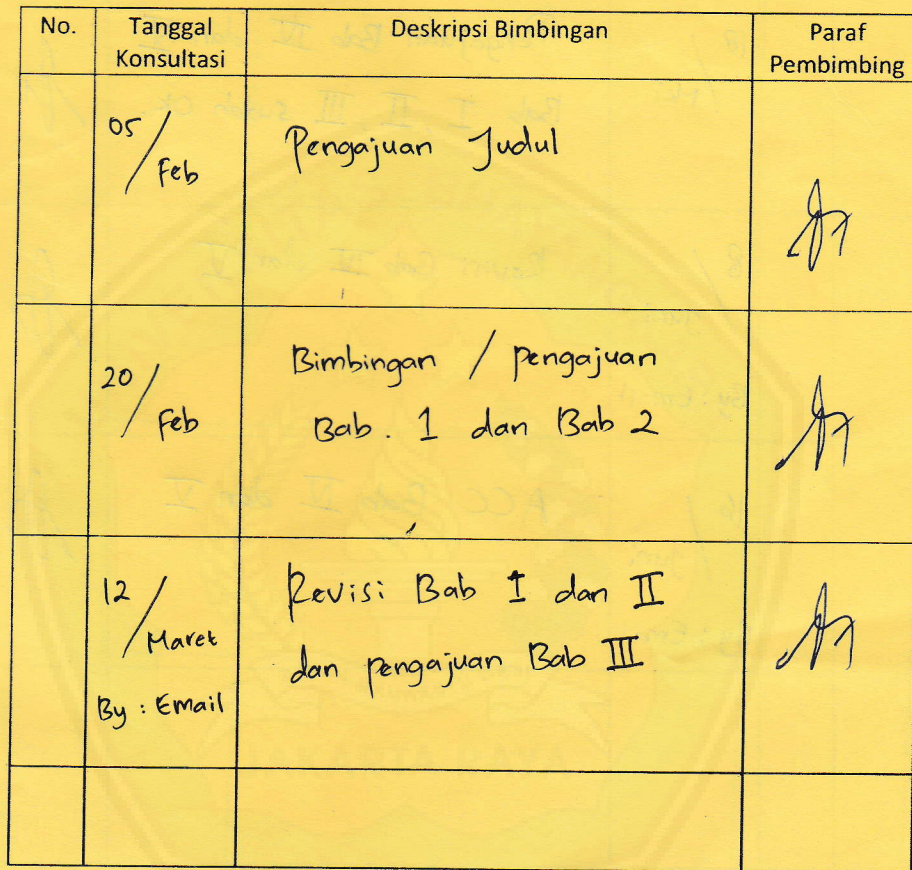 No. Tanggal Konsultasi Deskripsi Bimbingan Paraf Pembimbing
05/Feb Pengajuan Judul
20/Feb Bimbingan / pengajuan
Bab. 1 dan Bab 2
12/Maret Revisi Bab I dan II
dan pengajuan Bab III
By : Email